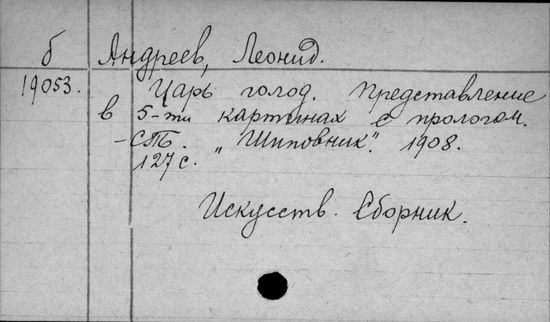 б Андреев, Леонид.
19053. Царь голод. Представление
в 5-ти картинах с прологом.
-СПБ. „Шиповник". 1908.
127 с.
Искусств. Сборник.